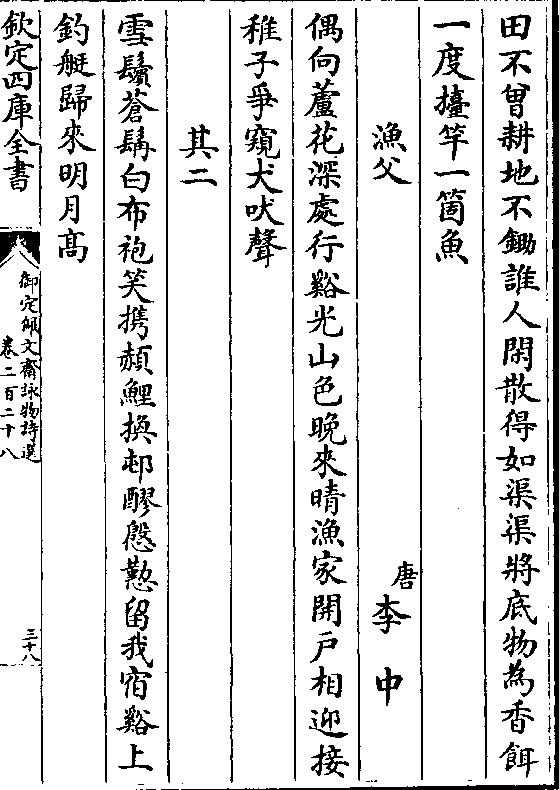 田不曾耕地不鋤誰人閑散得如渠渠將底物為香餌
一度擡竿一箇魚
漁父　唐李中
偶向蘆花深處行谿光山色晚來晴漁家開戶相迎接
稚子爭窺犬吠聲
其二
雪鬢蒼髯白布袍笑携赪鯉換邨醪慇懃留我宿谿上
釣艇歸來明月髙
欽定四庫全書
御定佩文齋詠物詩選
卷二百二十八
三十八